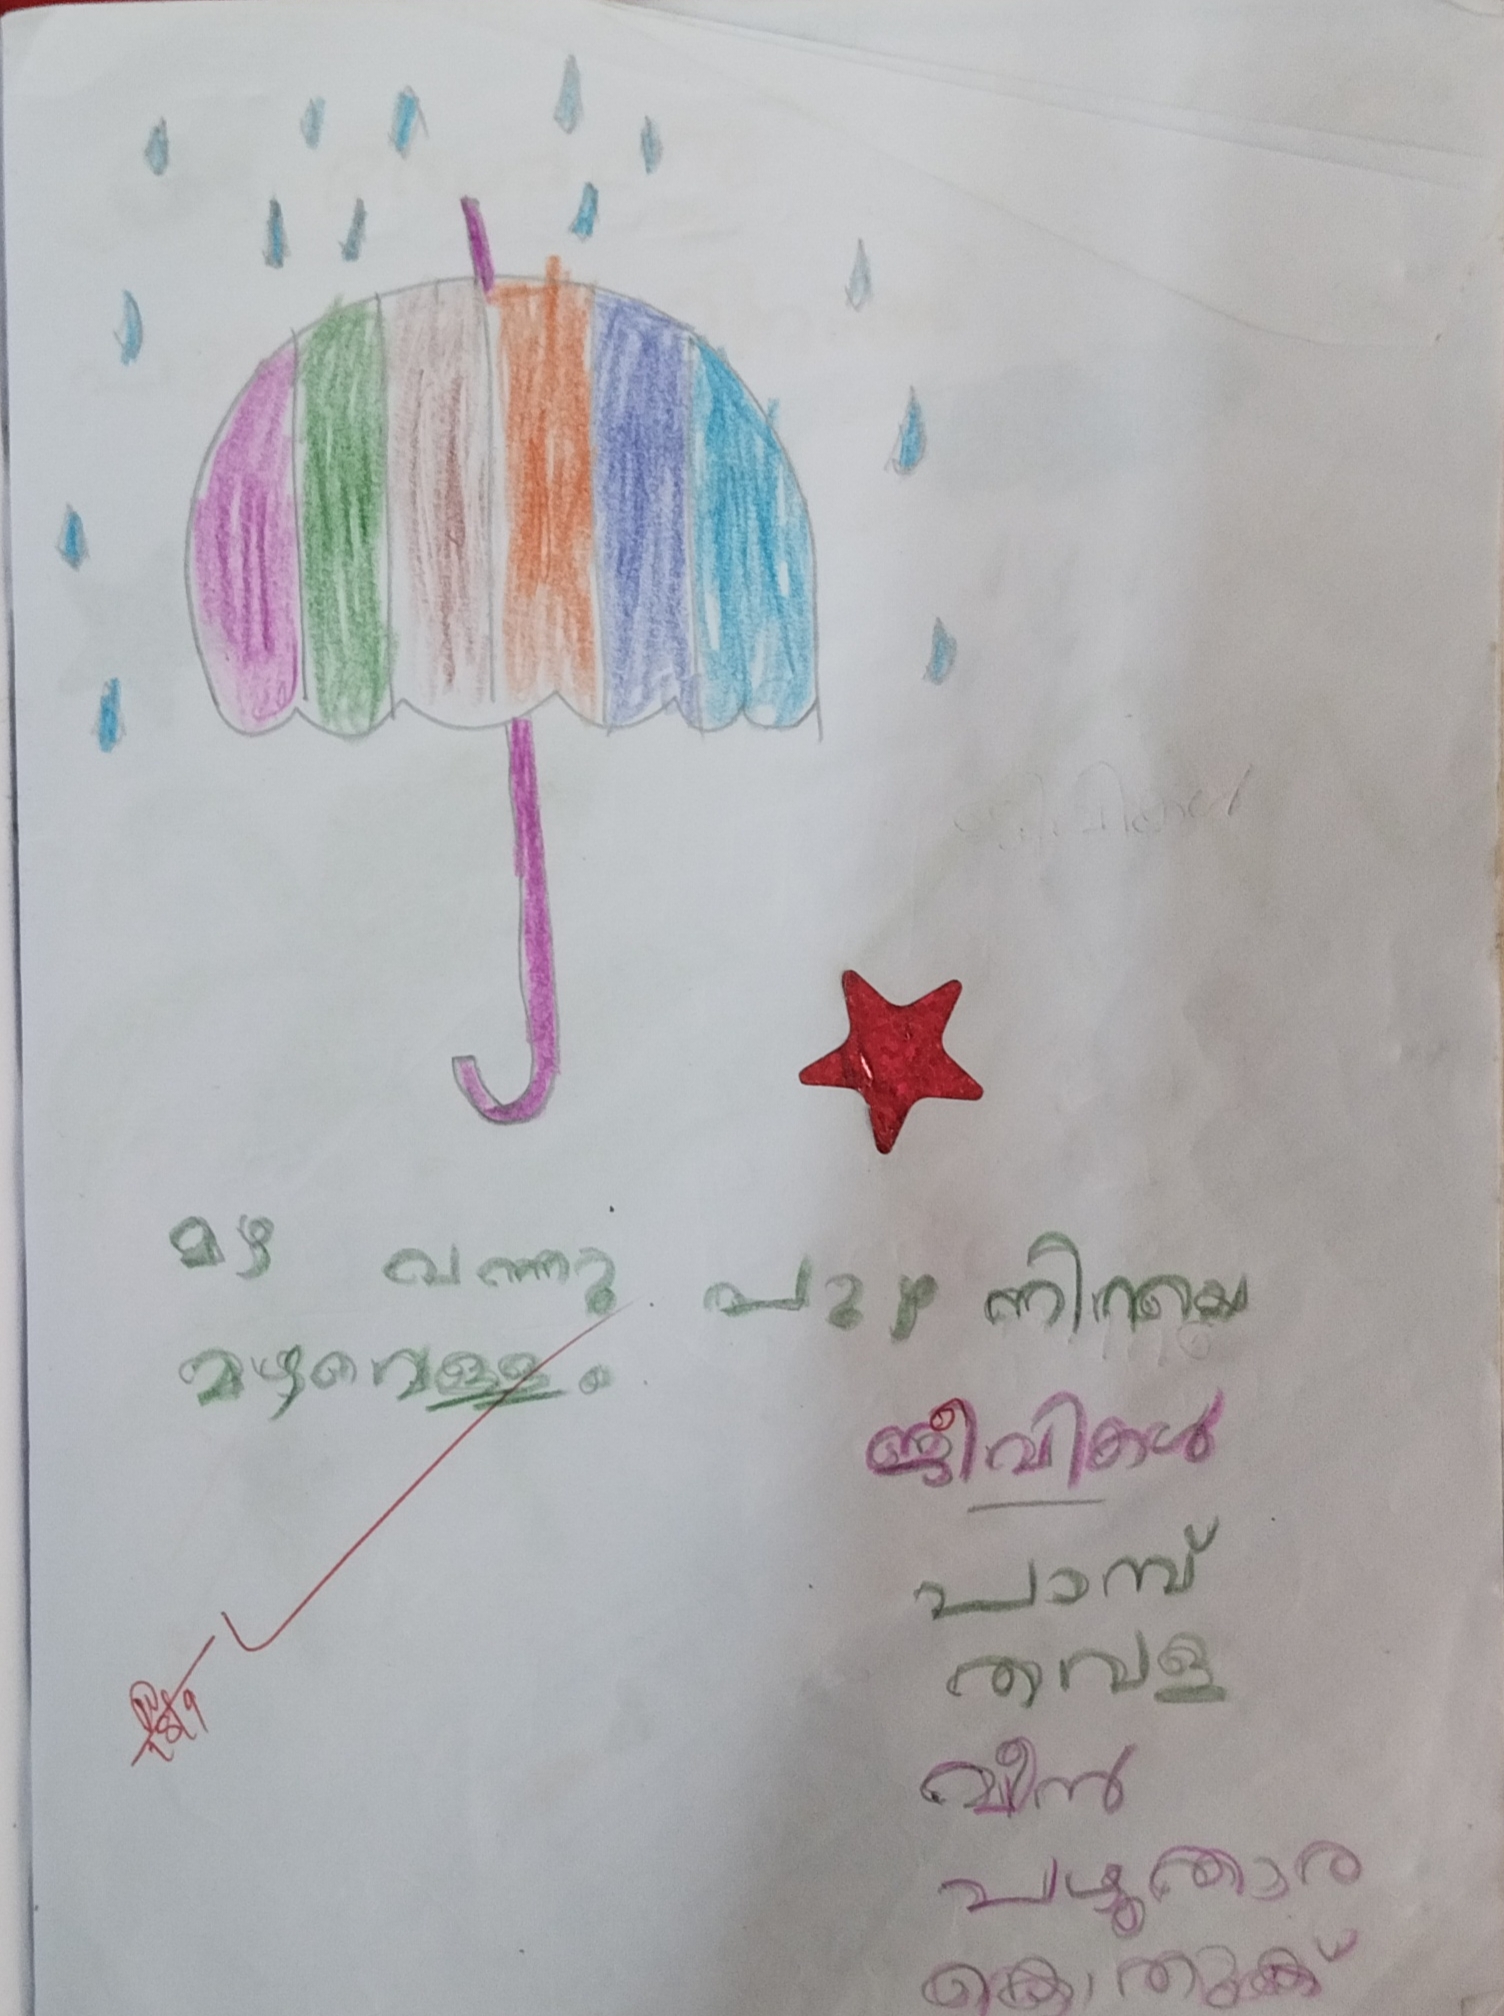 മഴ വന്നു പുഴ നിറയെ
മഴവെള്ളം.
ജീവികൾ
പാമ്പ്
തവള
മീൻ
പഴുതാര
കൊതുക്